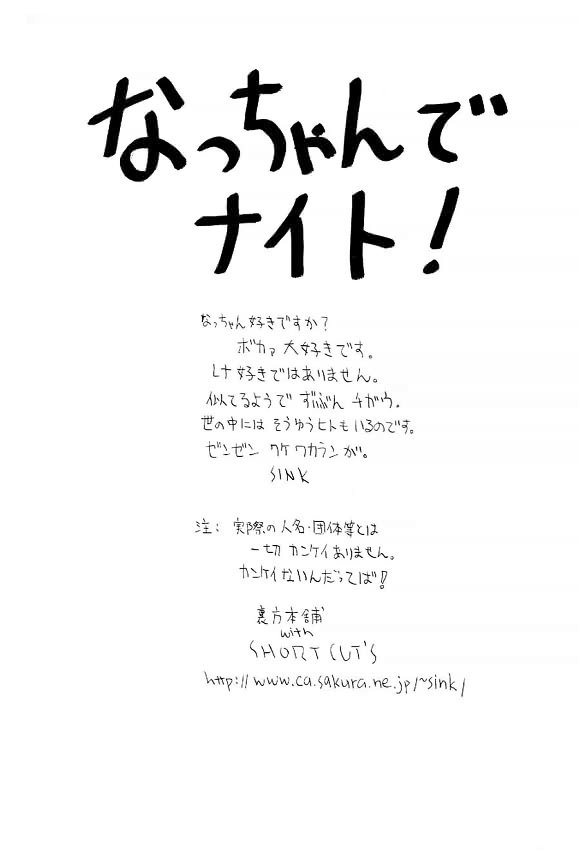 なっちゃんで
ナイト!
なっちゃん好きですか?
ボカァ 大好きです。
レナ好きではありません。
似てるようで ずいぶん チガウ.
世の中には そうゆうヒトもいるのです。
ゼンゼン ワケ ワカランが。
SINK
注: 実際の人名・団体等とは
一切 カンケイありません。
カンケイないんだってば!
裏方本舗
with
SHORT CUT'S
http://www.ca.sakura.ne.jp/~sink/